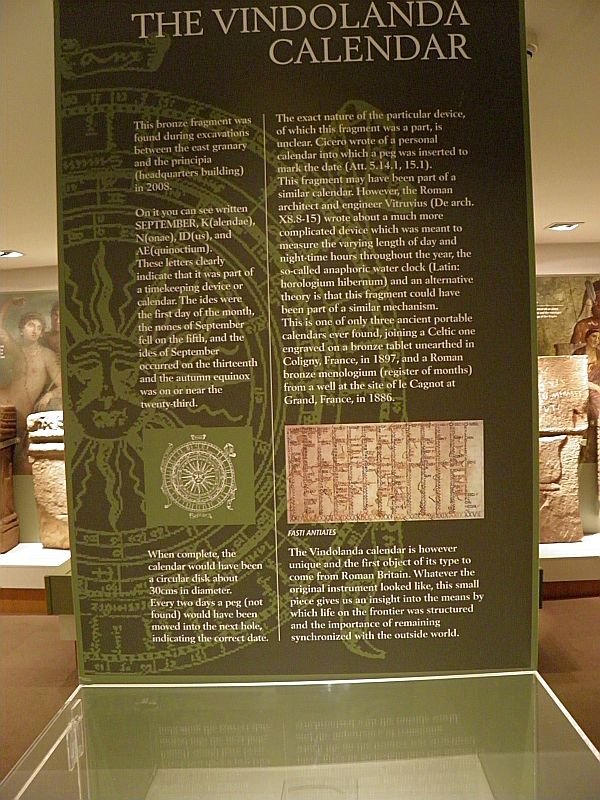 THE VINDOLANDA
CALENDAR
This bronze fragment was
found during excavations
between the east granary
and the principia
(headquarters building)
in 2008.
On it you can see written
SEPTEMBER, K(alendae),
N(onae), ID(us), and
AE(quinoctium).
These letters clearly
indicate that it was part of
a timekeeping device or
calendar. The ides were
the first day of the month,
the nones of September
fell on the fifth, and the
ides of September
occurred on the thirteenth
and the autumn equinox
was on or near the
twenty-third.
When complete, the
calendar would have been
a circular disk about
30cms in diameter.
Every two days a peg (not
found) would have been
moved into the next hole,
indicating the correct date.
The exact nature of the particular device,
of which this fragment was a part, is
unclear. Cicero wrote of a personal
calendar into which a peg was inserted to
mark the date (Att. 5.14.1, 15.1).
This fragment may have been part of a
similar calendar. However, the Roman
architect and engineer Vitruvius (De arch.
X8.8-15) wrote about a much more
complicated device which was meant to
measure the varying length of day and
night-time hours throughout the year, the
so-called anaphoric water clock (Latin:
horologium hibernum) and an alternative
theory is that this fragment could have
been part of a similar mechanism.
This is one of only three ancient portable
calendars ever found, joining a Celtic one
engraved on a bronze tablet unearthed in
Coligny, France, in 1897, and a Roman
bronze menologium (register of months)
from a well at the site of le Cagnot at
Grand, France, in 1886.
FASTI ANTIATES
The Vindolanda calendar is however
unique and the first object of its type to
come from Roman Britain. Whatever the
original instrument looked like, this small
piece gives us an insight into the means by
which life on the frontier was structured
and the importance of remaining
synchronized with the outside world.